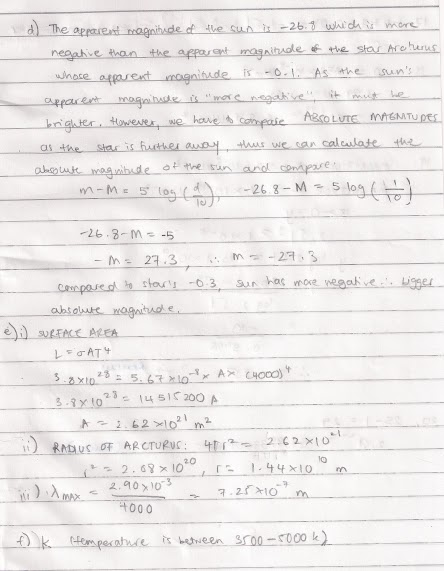 d) The apparent magnitude of the sun is -26.8 which is more
negative than the apparent magnitude of the star Arcturus
whose apparent magnitude is -0.1. As the sun's
apparent magnitude is "more negative" it must be
brighter. However, we have to compare ABSOLUTE MAGNITUDES
as the star is further away, thus we can calculate the
absolute magnitude of the sun and compare:
m-M = 5 log (d/10), -26.8-M = 5 log (1/10)
-26.8-M = -5
-M = 27.3, ∴ M = -27.3
Compared to star's -0.3, sun has more negative ∴ bigger
absolute magnitude.
e) i) SURFACE AREA
L = σAT4
3.8x10^28 = 5.67x10^-8 x A x (4000)^4
3.8x10^28 = 14515200 A
A = 2.62x10^21 m^2
ii) RADIUS OF ARCTURUS: 4πr^2 = 2.62x10^21
r^2 = 2.08x10^20, r = 1.44x10^10 m
iii) λmax = 2.90x10^-3 / 4000 = 7.25x10^-7 m
f) K (temperature is between 3500-5000 k)